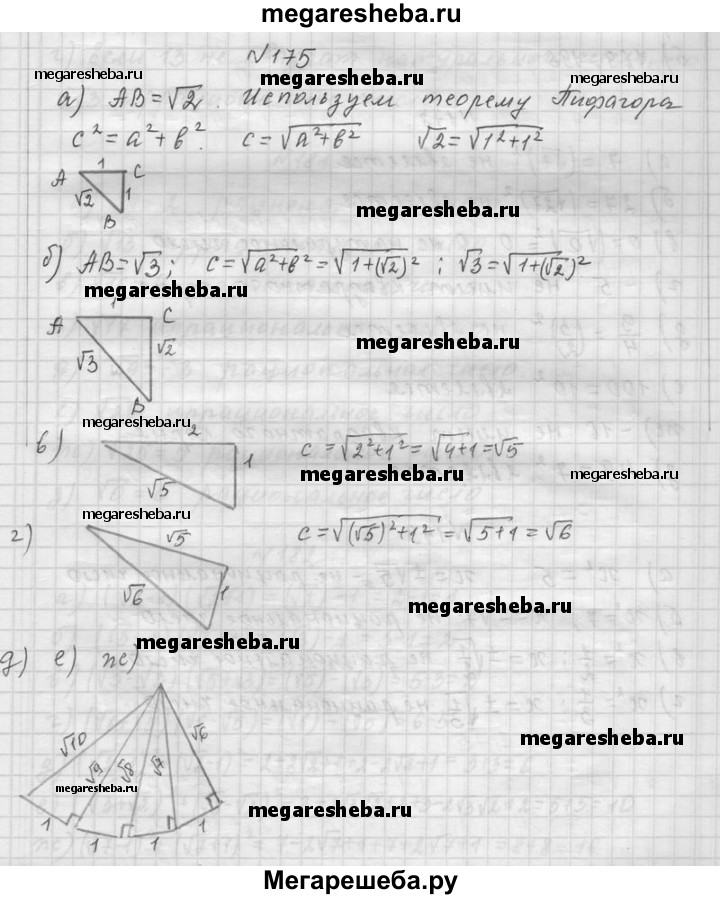 megaresheba.ru
№175
megaresheba.ru megaresheba.ru megaresheba.ru
а) AB=√2. Используем теорему Пифагора
c²=a²+b². c=√(a²+b²) √2=√(1²+1²)
A 1 C
√2 1
B
megaresheba.ru
б) AB=√3; c=√(a²+b²)=√(1+(√2)²); √3=√(1+(√2)²)
megaresheba.ru
A 1 C
megaresheba.ru
√3 √2
B
megaresheba.ru
в) 2 c=√(2²+1²)=√(4+1)=√5
1
megaresheba.ru megaresheba.ru
√5
megaresheba.ru
г) √5 c=√((√5)²+1²)=√(5+1)=√6
√6 1
megaresheba.ru
megaresheba.ru
д) е) ж)
√10 √9 √8 √7 √6
megaresheba.ru
megaresheba.ru
megaresheba.ru
1 1 1 1
Мегарешеба.ру